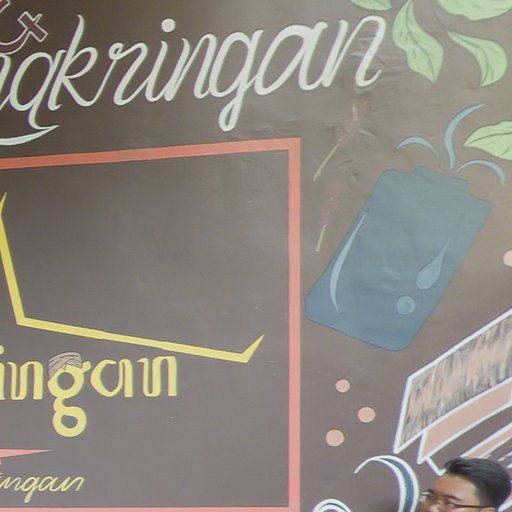 &
ngkringan
ingan
ingan